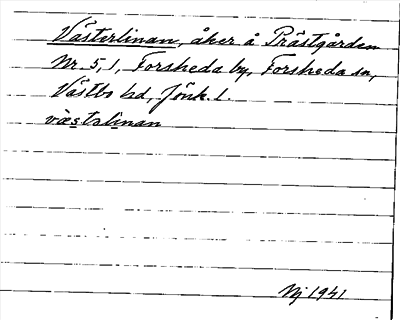 Västerlinan, åker å Prästgården
Nr. 5, 1, Forsheda by, Forsheda sn,
Västbo hd, Jönk. l.
væstəlinan
Nj 1941